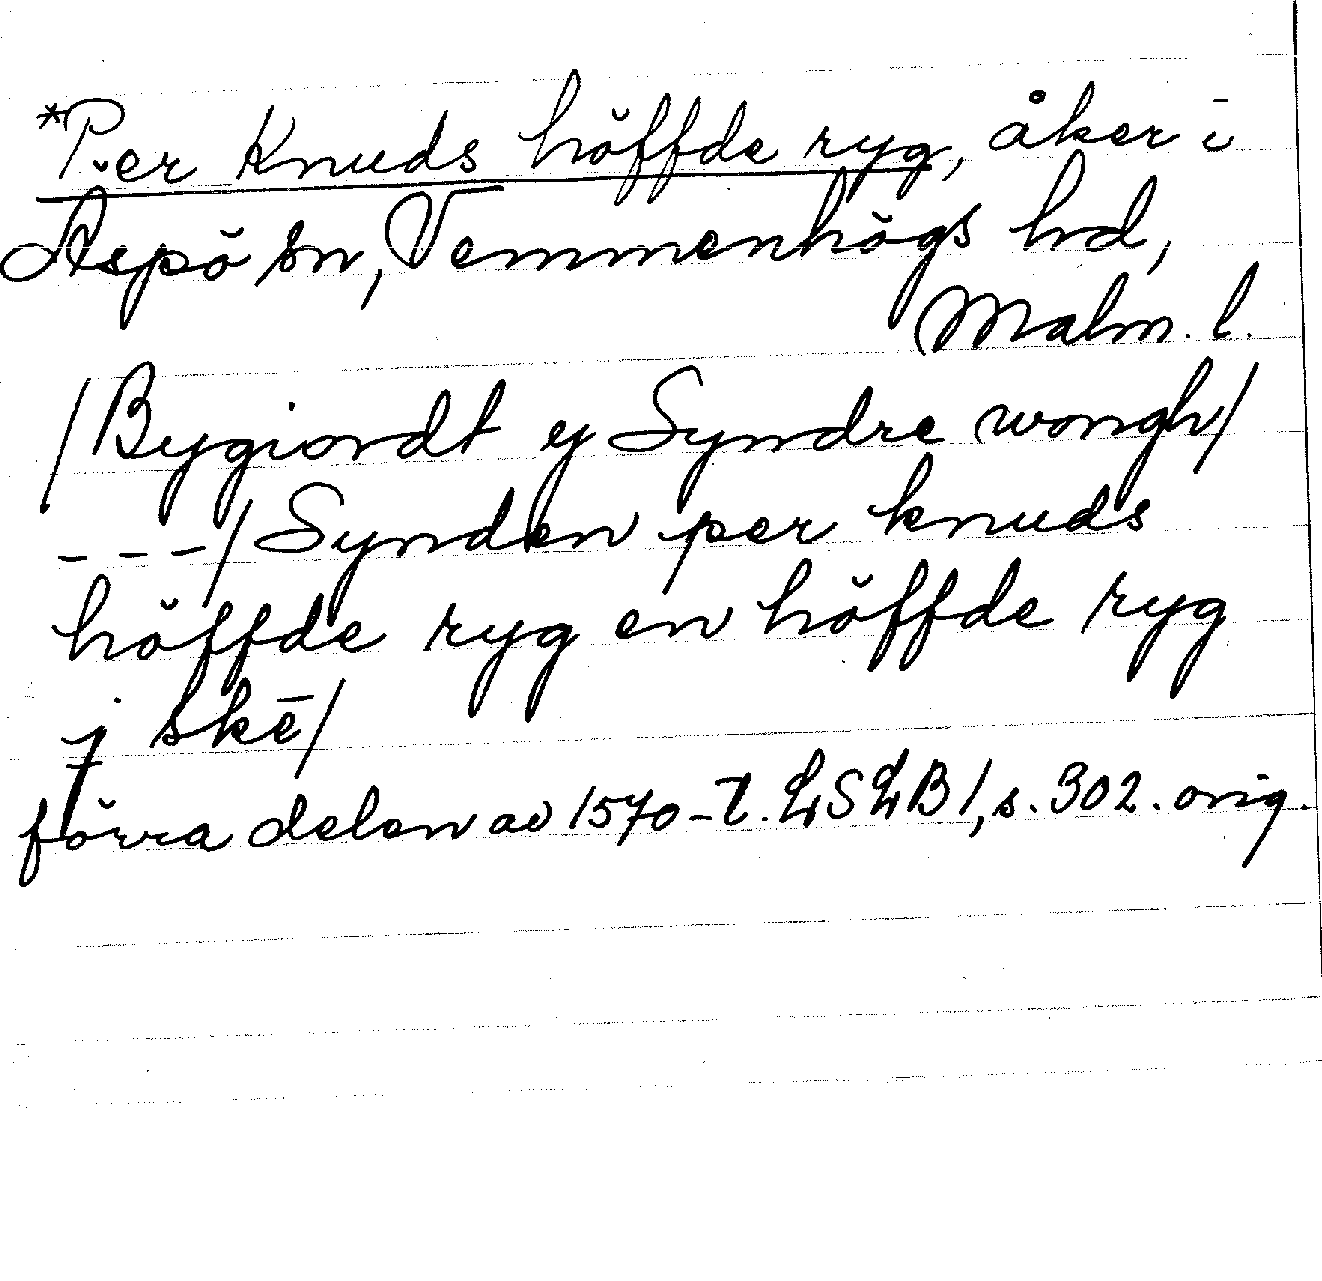 *Per Knuds höffde ryg, åker i
Aspö sn, Vemmenhögs hd,
Malm. l.
/Bygiordt ey Syndre wongh/
- - -/Synden per knuds
höffde ryg en höffde ryg
j skē/
förra delen av 1570-t. LSLB 1, s. 302. orig.